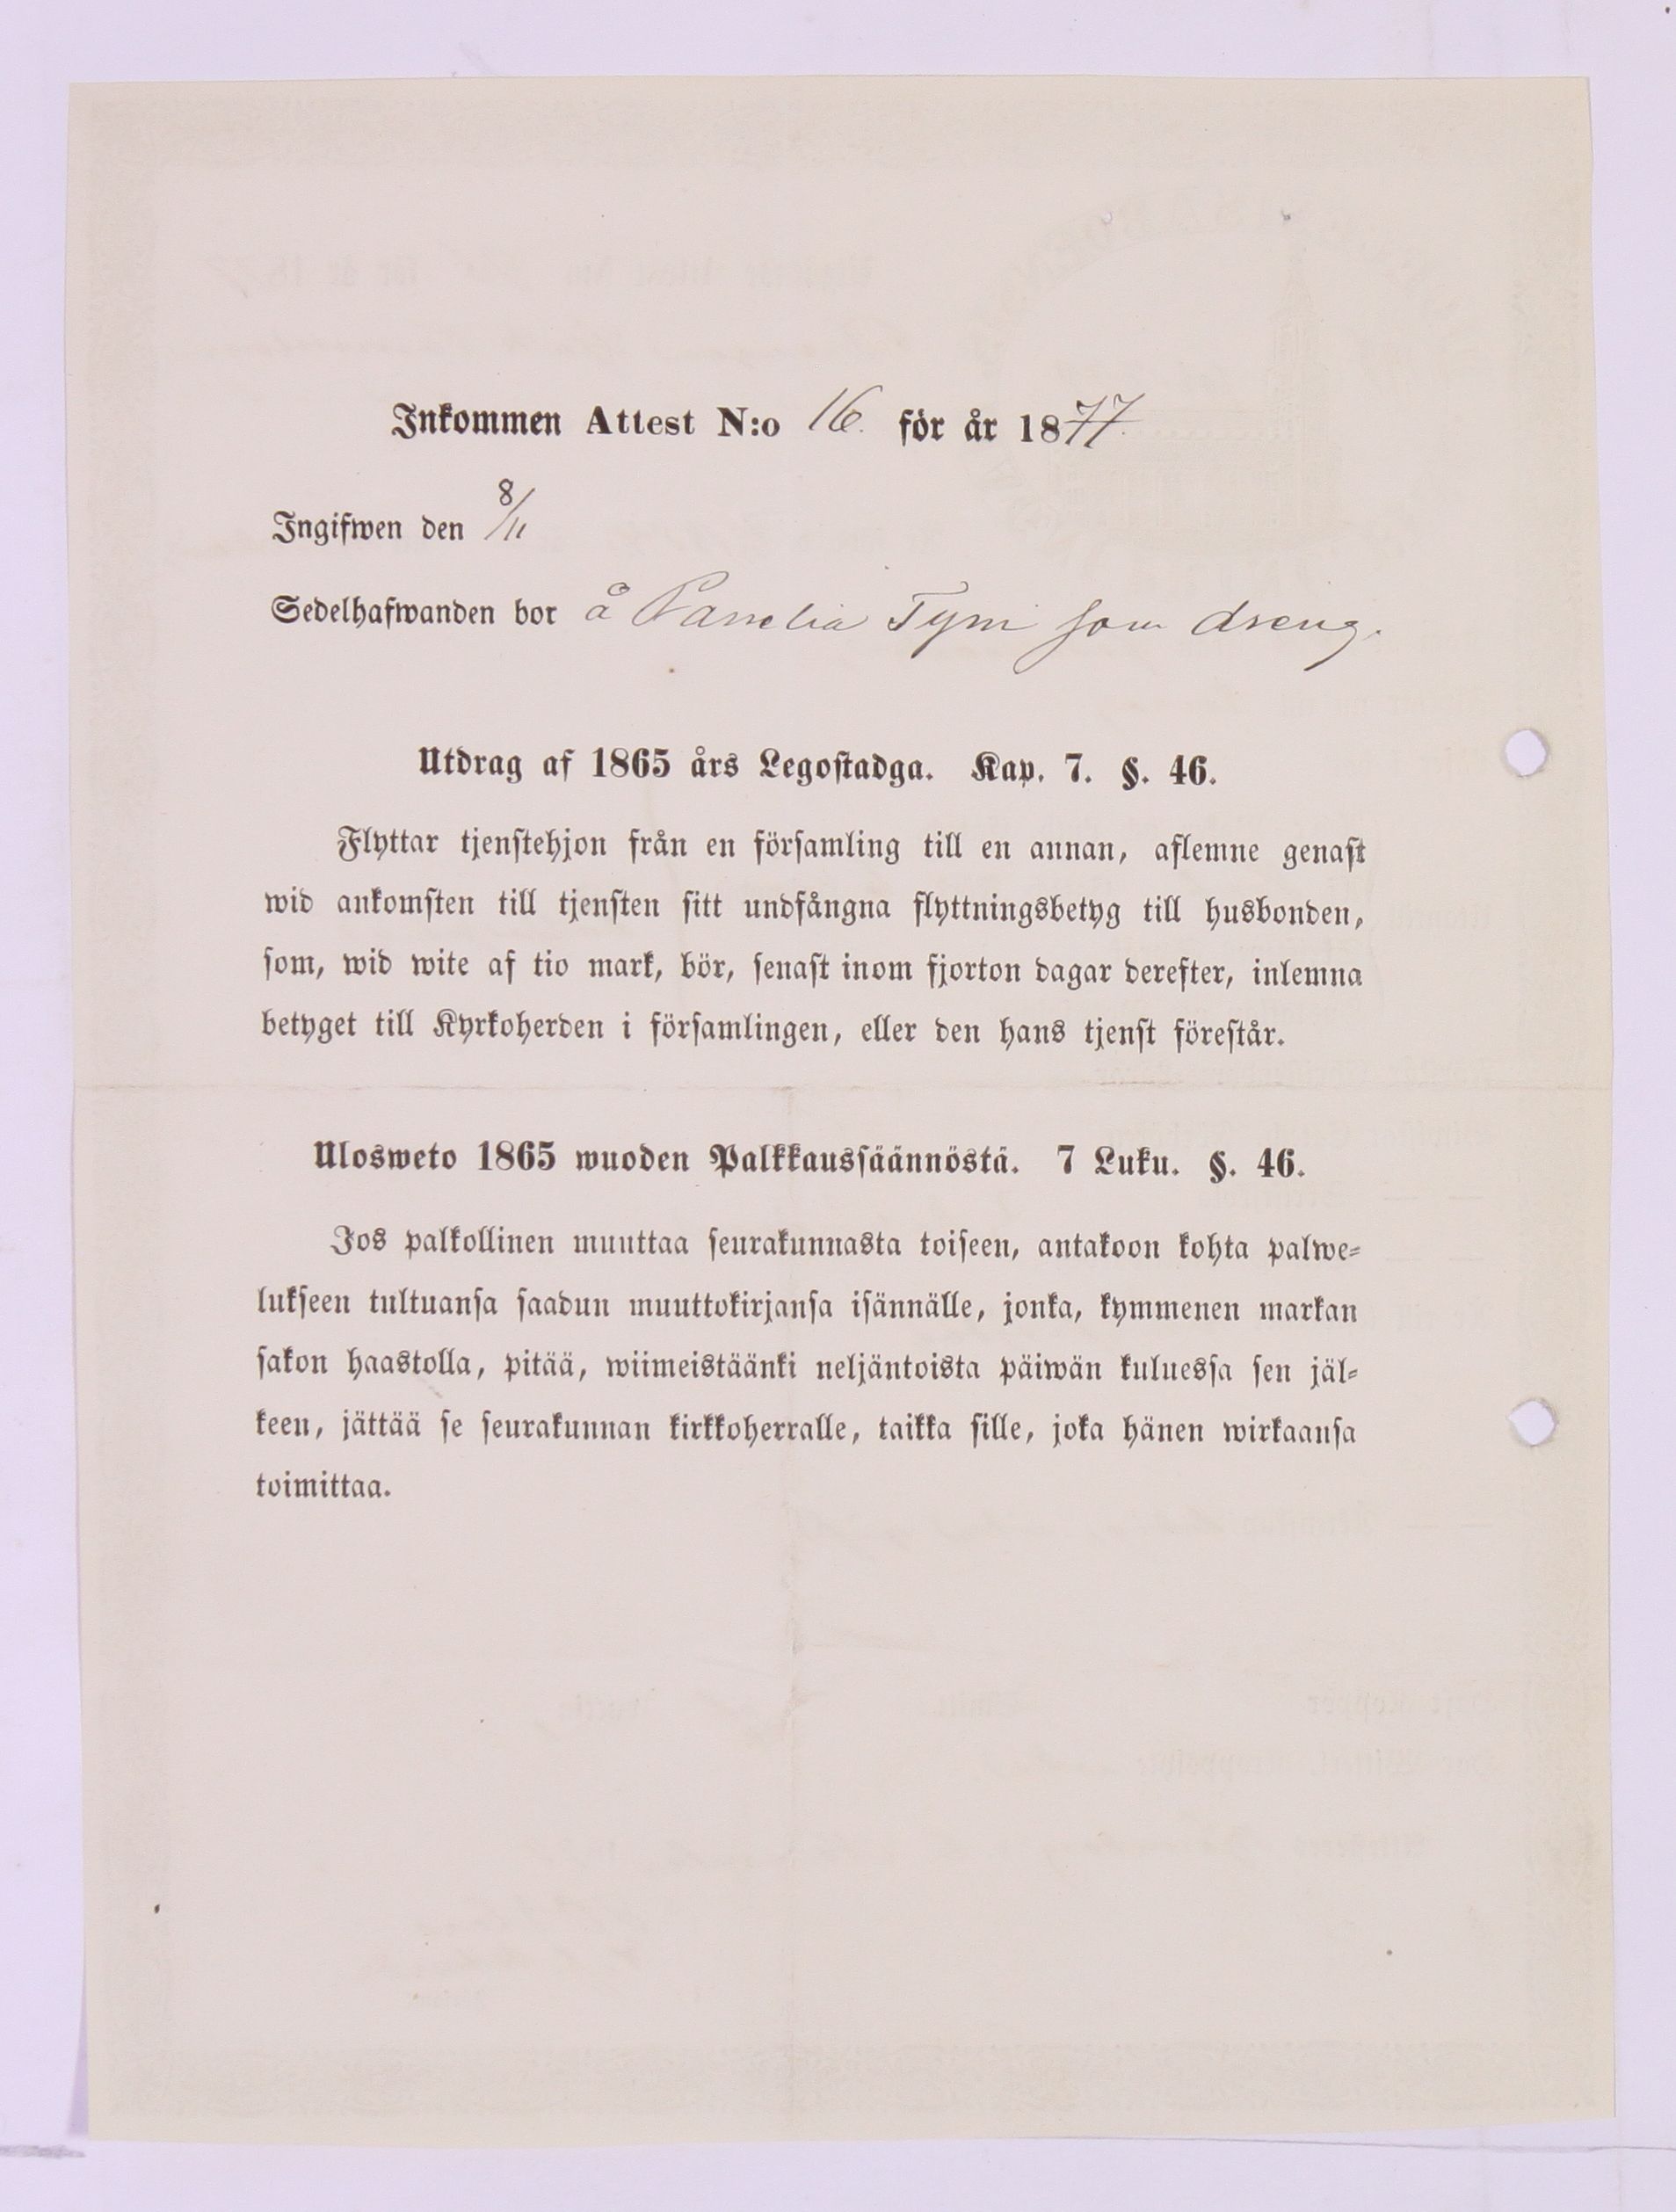 Inkommen Attest N:o 16. för år 1877.
Ingifwen den 8/11
Sedelhafwanden bor å Panelia Tyni som dreng.
Utdrag af 1865 års Legostadga. Kap. 7. §. 46.
Flyttar tjenstehjon från en församling till en annan, aflemne genast
wid ankomsten till tjensten sitt undfångna flyttningsbetyg till husbonden,
som, wid wite af tio mark, bör, senast inom fjorton dagar derefter, inlemna
betyget till Kyrkoherden i församlingen, eller den hans tjenst förestår.
Ulosweto 1865 wuoden Palkkaussäännöstä. 7 Luku. §. 46.
Jos palkollinen muuttaa seurakunnasta toiseen, antakoon kohta palwe-
lukseen tultuansa saadun muuttokirjansa isännälle, jonka, kymmenen markan
sakon haastolla, pitää, wiimeistäänki neljäntoista päiwän kuluessa sen jäl-
keen, jättää se seurakunnan kirkkoherralle, taikka sille, joka hänen wirkaansa
toimittaa.